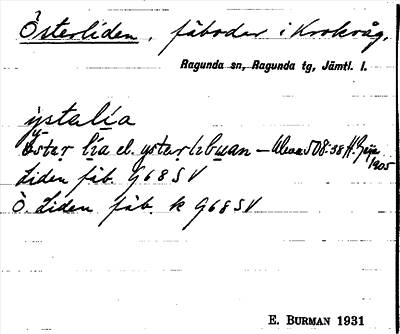 Österliden, fäbodar i Krokvåg,
Ragunda sn, Ragunda tg, Jämtl. l.
ystalia
öster lia el. ystarlibuan – 508:38 1905
Liden fäb. G 68 SV
Ö. Liden fäb. k G 68 SV
E. BURMAN 1931